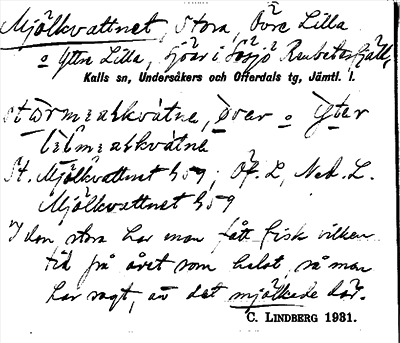 Mjölkvattnet, Stora, Övre Lilla
o Yttre Lilla, sjöar i Sösjö Renbetesfjäll,
Kalls sn, Undersåkers och Offerdals tg, Jämtl. l.
över o Yter
St. Mjölkvattnet h 59; Öf. L, Ned. L.
Mjölkvattnet h 59
I den stora har man fått fisk vilken
tid på året som helst, så man
har sagt, av det mjölkede där.
C. LINDBERG 1931.